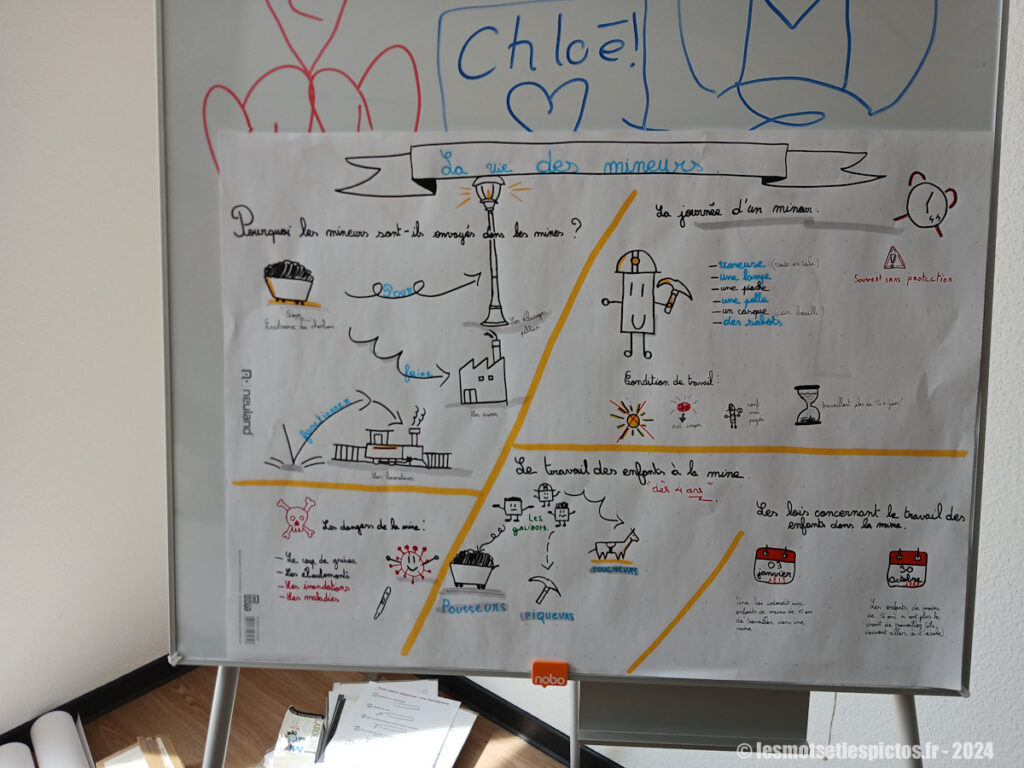 Chloé!
La vie des mineurs
Pourquoi les mineurs sont-ils envoyés dans les mines ?
Pour
Extraire du charbon
Pour
Les
publics
faire
Les usines
fonctionner
Les locomotives
neuland
La journée d'un mineur.
- vareuse
- une lampe
- une pioche
- une pelle
- un casque (cuir bouilli)
- des sabots
Souvent sans protection
Condition de travail :
air
sont
mal
payés
travaillent plus de
Les dangers de la mine :
- Le coup de grisou
- Les éboulements
- Les inondations
- Les maladies
Le travail des enfants à la mine.
"dès 4 ans"
Les
galibots
Pousseurs
Piqueurs
Toucheurs
Les lois concernant le travail des
enfants dans la mine.
03
janvier
Une loi interdit aux
enfants de moins de 10 an
de travailler dans une
mine
30
octobre
Les enfants de moins
de ans n'ont plus le
droit de travailler
doivent aller à l'école
nobo
© lesmotsetlespictos.fr - 2024